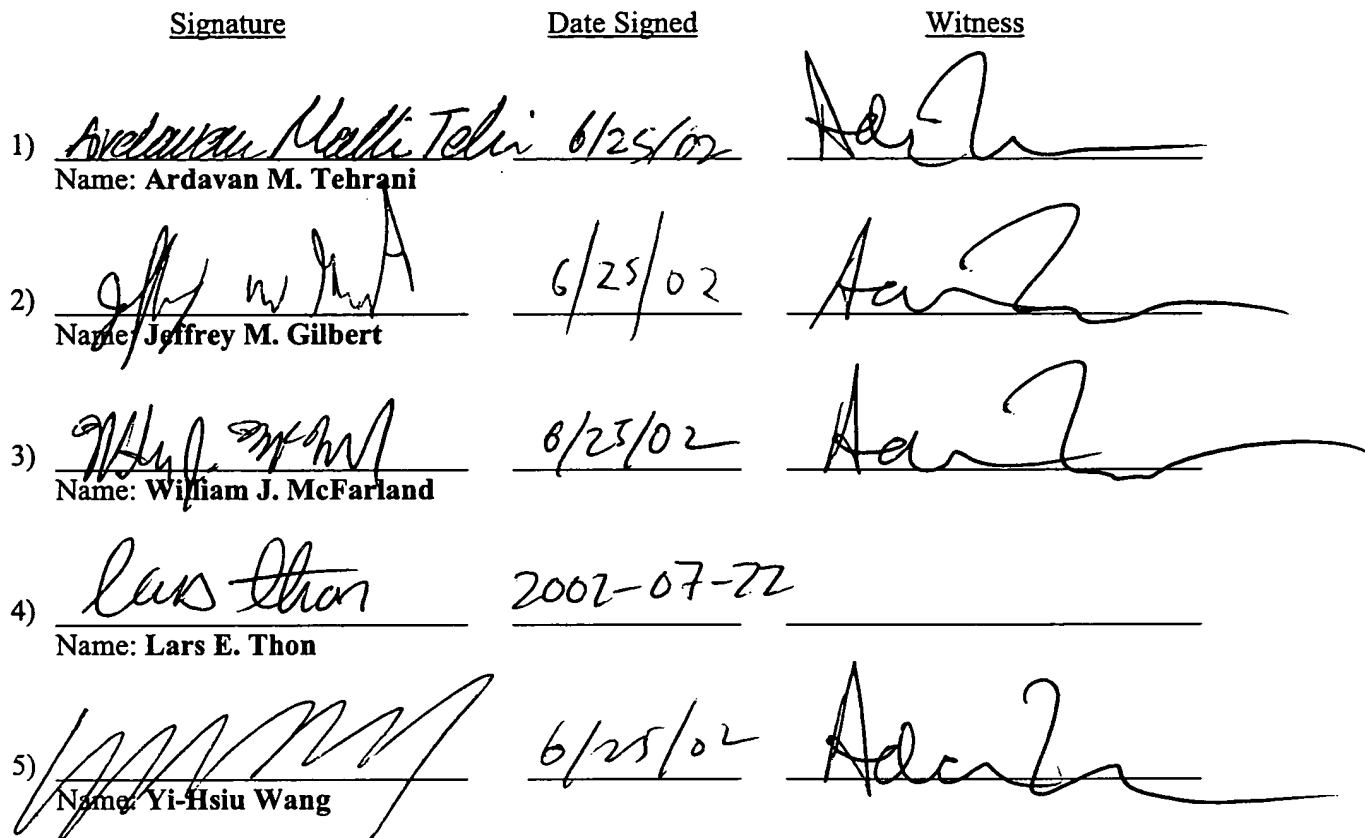 Signature Date Signed Witness
1) Ardavan Tehr 6/25/02
Name: Ardavan M. Tehrani
2) 6/25/02
Name: Jeffrey M. Gilbert
3) 6/25/02
Name: William J. McFarland
4) Lars Thon 2002-07-22
Name: Lars E. Thon
5) 6/25/02
Name: Yi-Hsiu Wang